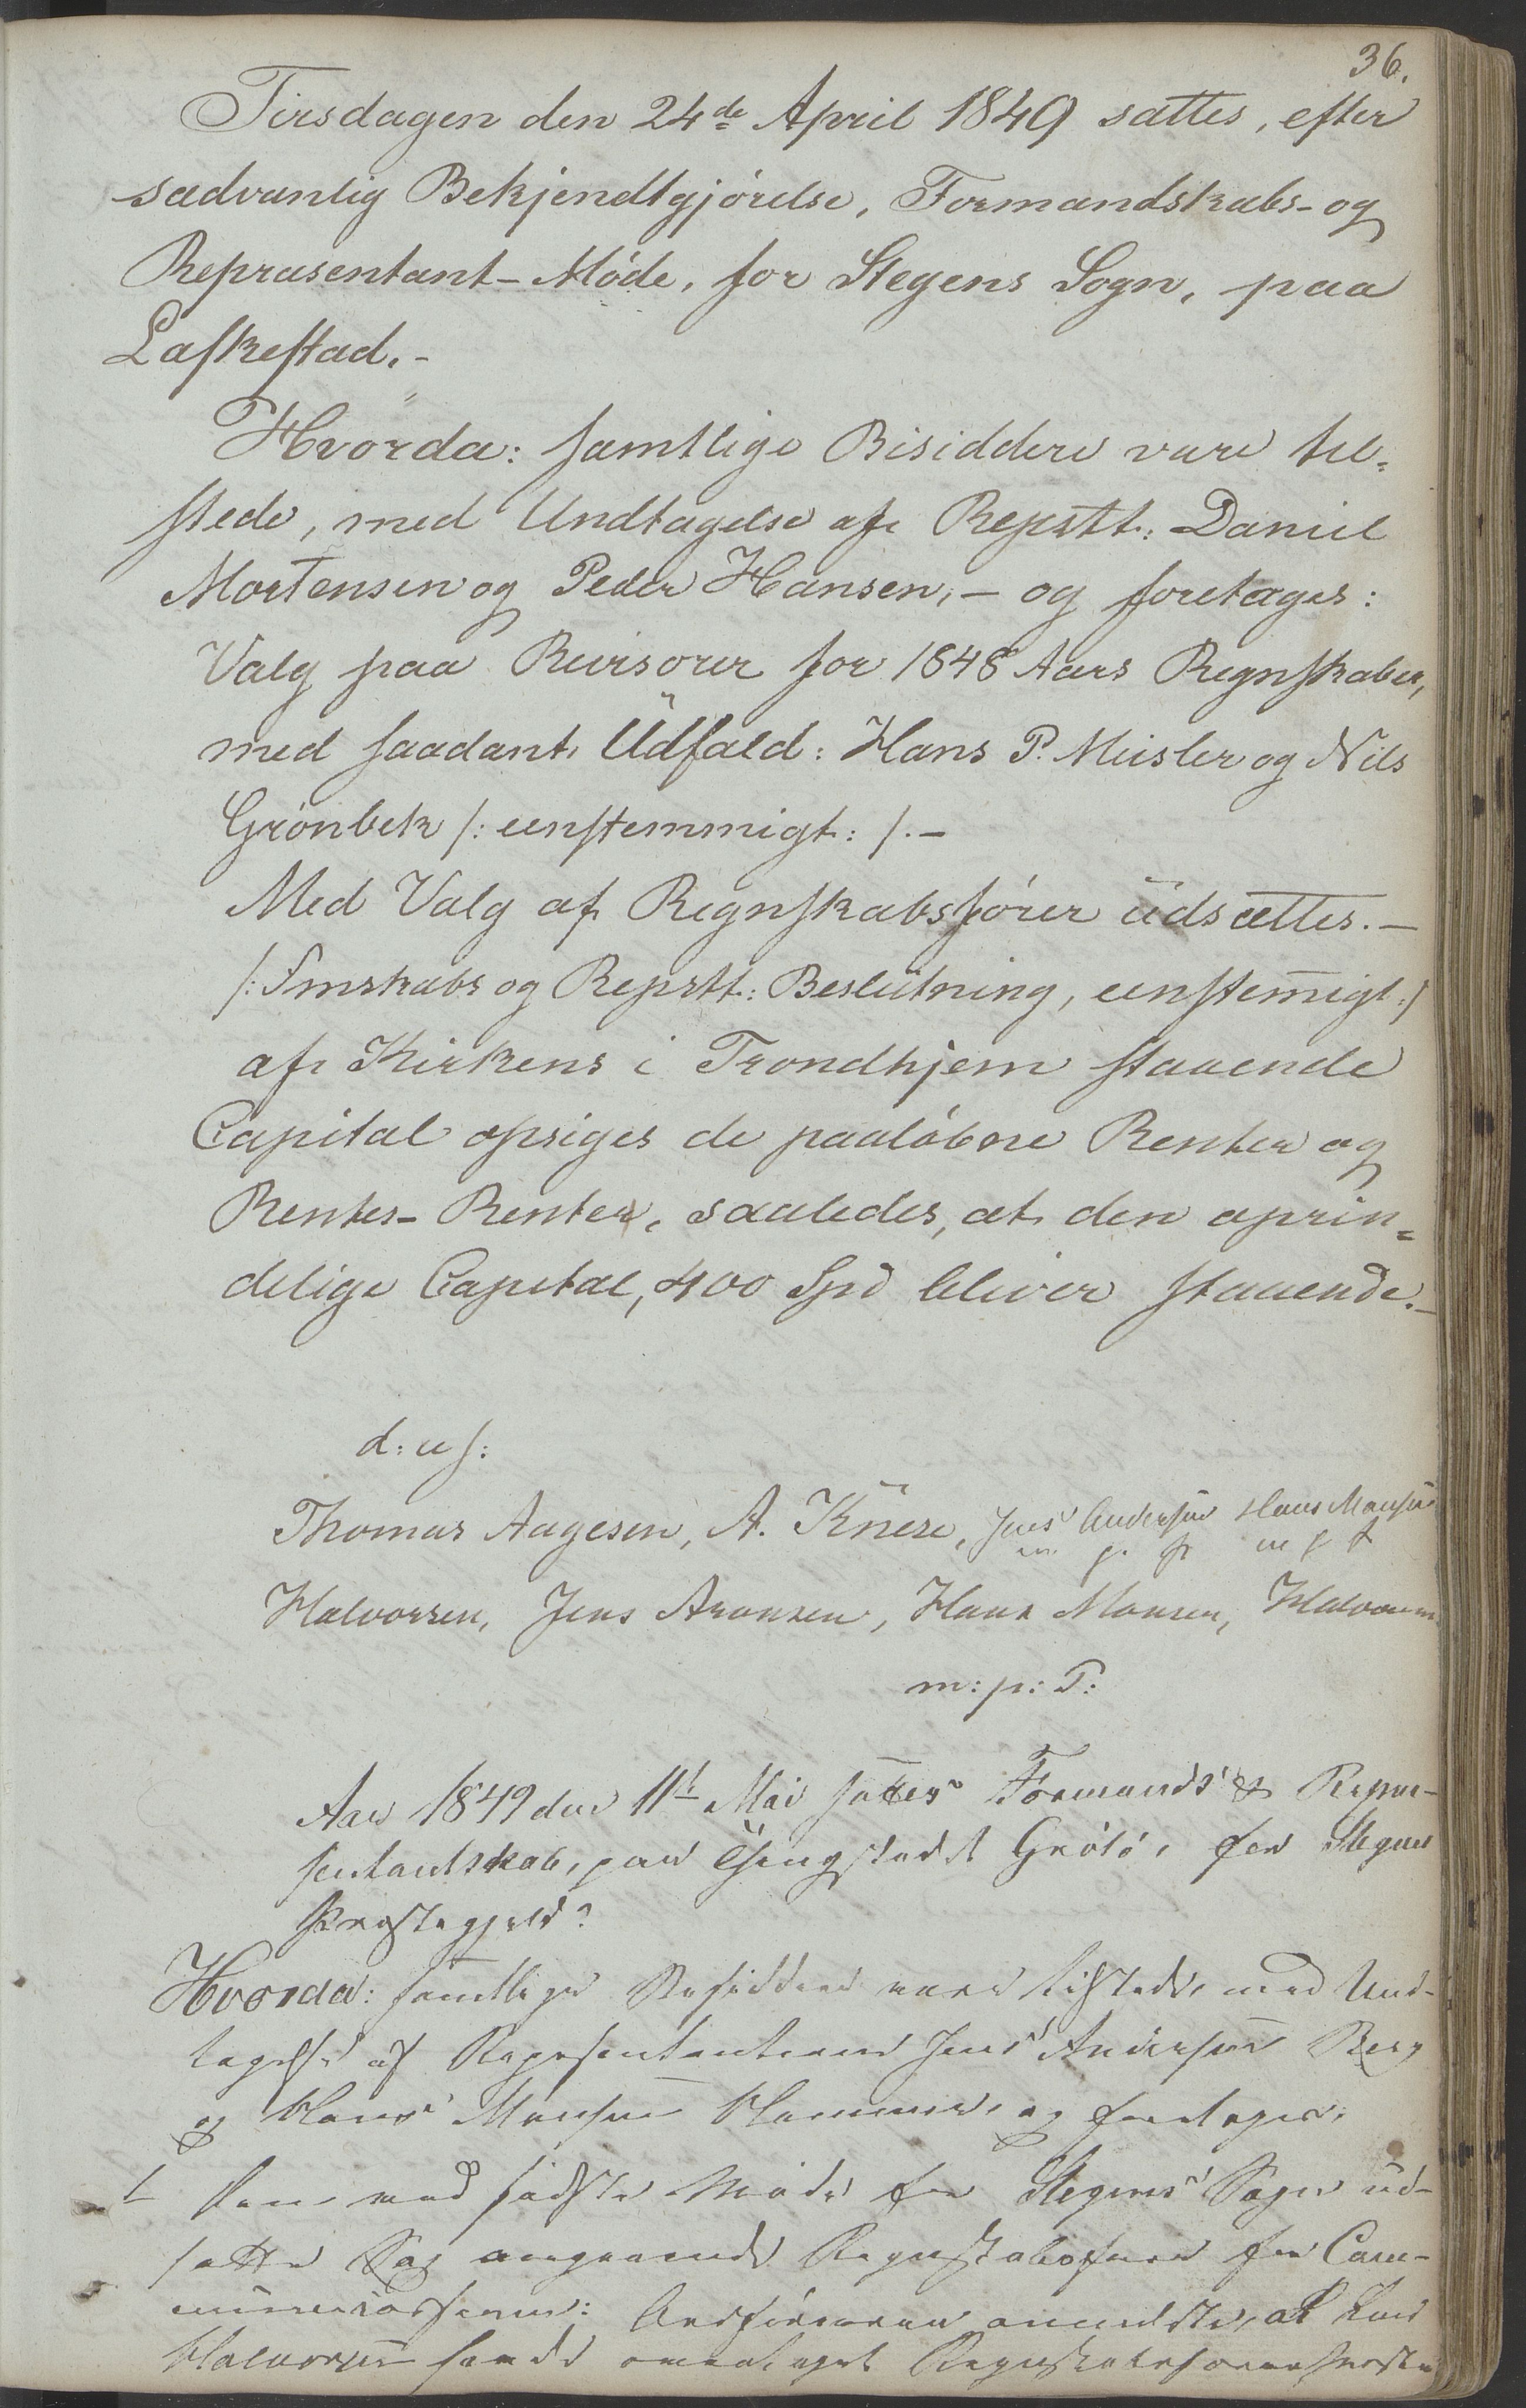 36.
Tirsdagen den 24de April 1849 sattes, efter
sædvanlig Bekjendtgjórelse, Formandskabs- og
Repræsentant-Móde, for Stegens Sogn, paa
Laskestad.-
Hvorda: samtlige Bisiddere vare til-
stede, med Undtagelse af Reprstt: Daniel
Mortensen og Peder Hansen, - og foretages:
Valg paa Revisorer for 1848 Aars Regnskaber,
med saadant Udfald: Hans P. Meisler og Nils
Grönbek /: eenstemmigt: /.-
Med Valg af Regnskabsfórer udsættes.-
/: Fmskabs og Reprstt: Beslutning, eenstemigt:/
af Kirkens i Trondhjem staaende
Capital opsiges de paalóbne Renter og
Renters-Renter, saaledes, at den oprin-
delige Capital, 400 Spd bliver staaende.-
d: u s:
Thomas Aagesen, A. Knese, Jens Andersen Hans Monsen
m p P m p P
Halvorsen, Jens Aronsen, Hans Monsen, Halvorsen
m: p: P:
Aar 1849 den 11t Mai sattes Formands & Repræ-
sentantskab, paa Thingstedet Grótó, for Stegens
Præstegjeld?
Hvorda: samtlige Besiddere vare tilstede, med Und-
tagelse af Repræsentanterne Jens Andersen Berg
og Hans Monsen Hammer, og foretages:
1 Den ved sidste Móde for Stegens Sogn ud-
satte Sag angaaende Regnskabsfórer for Com-
municasserne: Ordfóreren anmeldte, at Lars
Halvorsen havde modtaget Regnskabsfórer